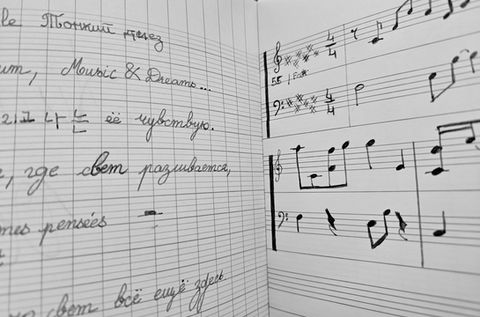 le Тонкий
um, Music & Dreams...
고 나는 её чувствую.
, где свет разливается,
mes pensées
свет всё ещё здесь
4/4
4/4